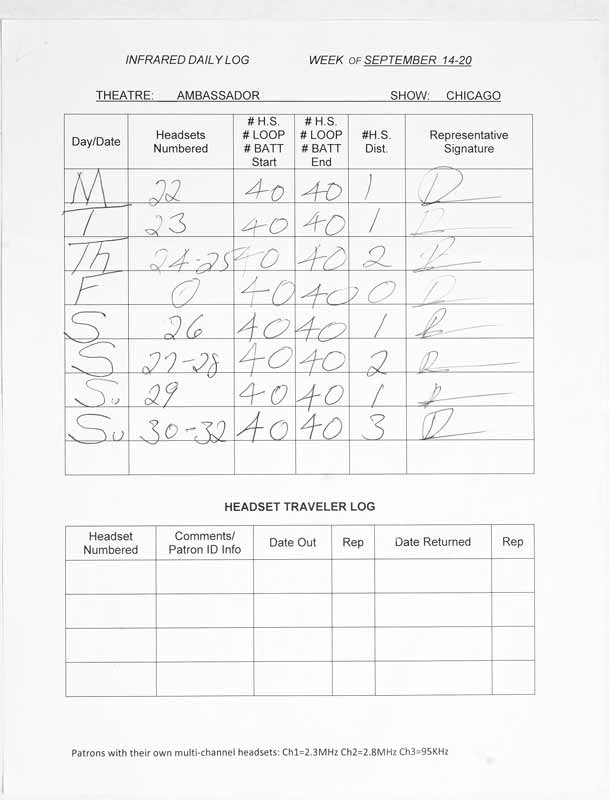 INFRARED DAILY LOG WEEK OF SEPTEMBER 14-20
THEATRE: AMBASSADOR SHOW: CHICAGO
Day/Date Headsets Numbered # H.S. # LOOP # BATT Start # H.S. # LOOP # BATT End #H.S. Dist. Representative Signature
M 22 40 40 1
T 23 40 40 1
Th 24-25 40 40 2
F 0 40 40 0
S 26 40 40 1
S 27-28 40 40 2
Su 29 40 40 1
Su 30-32 40 40 3
HEADSET TRAVELER LOG
Headset Numbered Comments/ Patron ID Info Date Out Rep Date Returned Rep
Patrons with their own multi-channel headsets: Ch1=2.3MHz Ch2=2.8MHz Ch3=95KHz